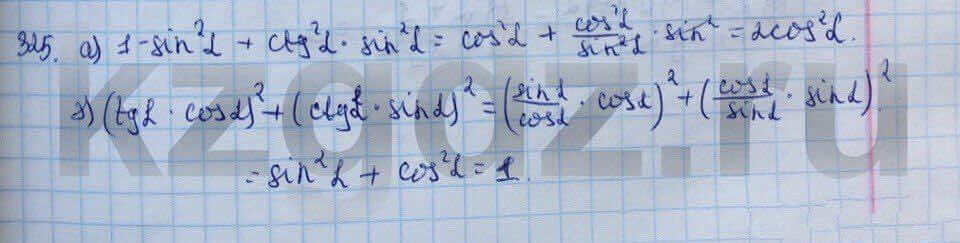 325. а) 1 - sin²α + ctg²α · sin²α = cos²α + cos²α/sin²α · sin² = 2cos²α.
г) (tgα · cosα)² + (ctgα · sinα)² = (sinα/cosα · cosα)² + (cosα/sinα · sinα)².
= sin²α + cos²α = 1.
kzgdz.ru